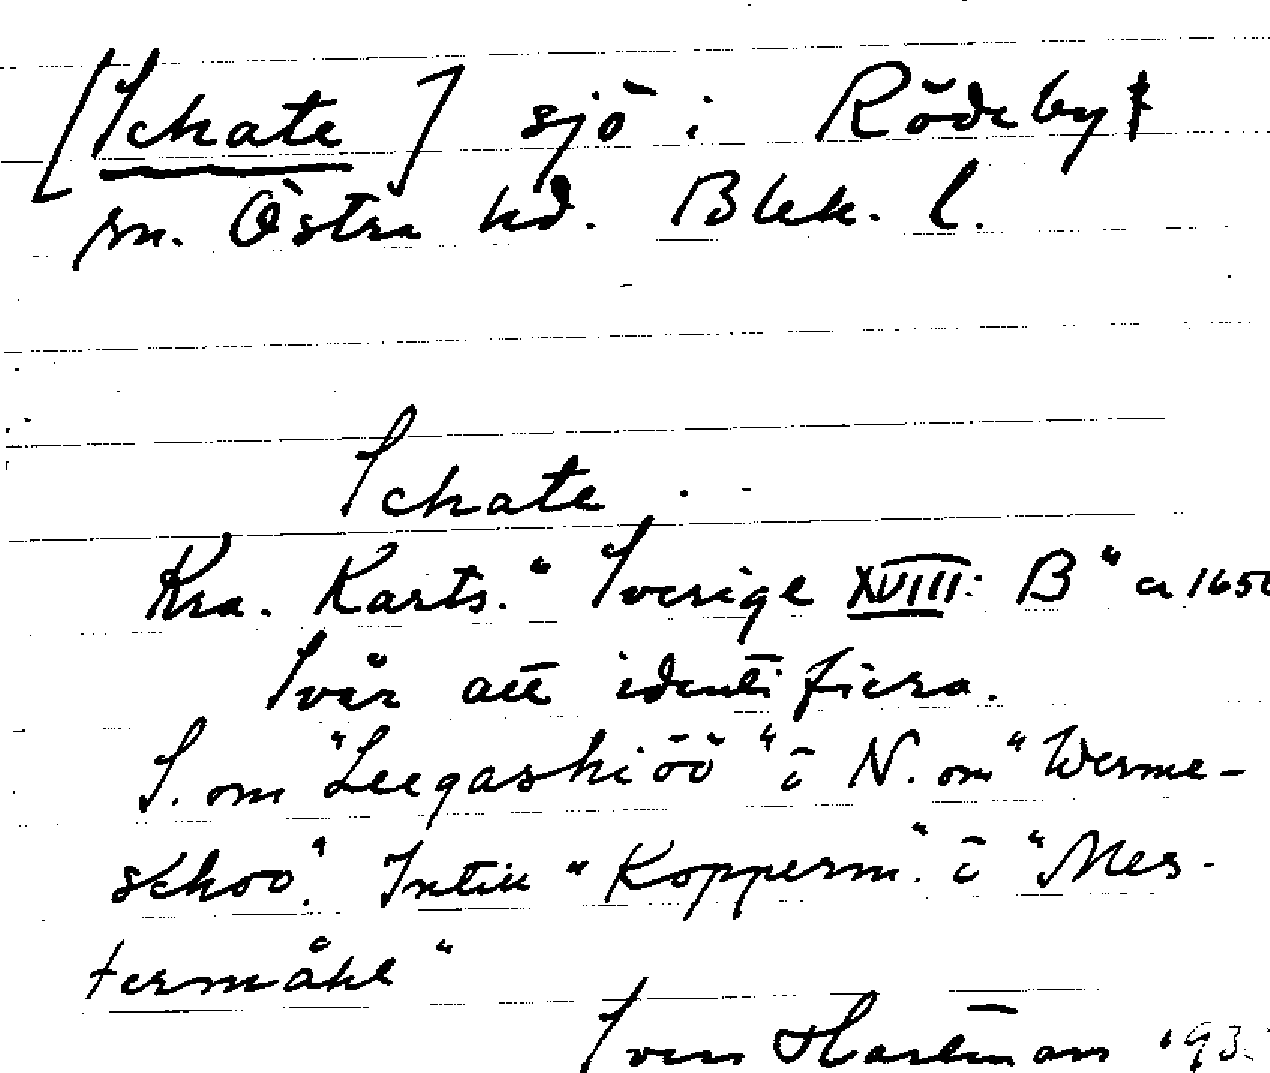 [Schate] sjö i Rödeby
sn. Östra hd. Blek. l.
Schate
Kra. Karts. "Sverige XVIII: B" ca 1650
Svår att identifiera.
S. om "Leegaskiöö" o N. om "Werme-
skoo". Intill "Kopperm." o "Mes-
termåhl"
Sven Hartman 193